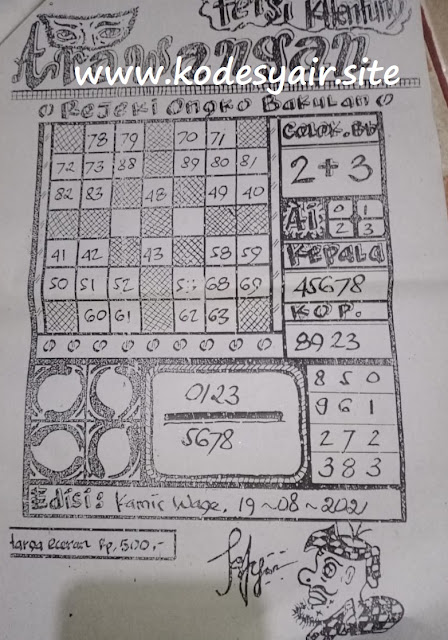 Versi Klentung
Arawangan
www.kodesyair.site
Rejeki Ongko Bakulan
78 79 70 71
COLOK.BB
72 73 88 89 80 81
2 + 3
82 83 48 49 40
AI 0 1 2 3
KEPALA
41 42 43 58 59
50 51 52 68 69
45678
60 61 62 63
KOP.
8923
0123
5678
8 5 0
9 6 1
2 7 2
3 8 3
Edisi: Kamis Wage, 19~08~2021
Harga eceran Rp, 500,-